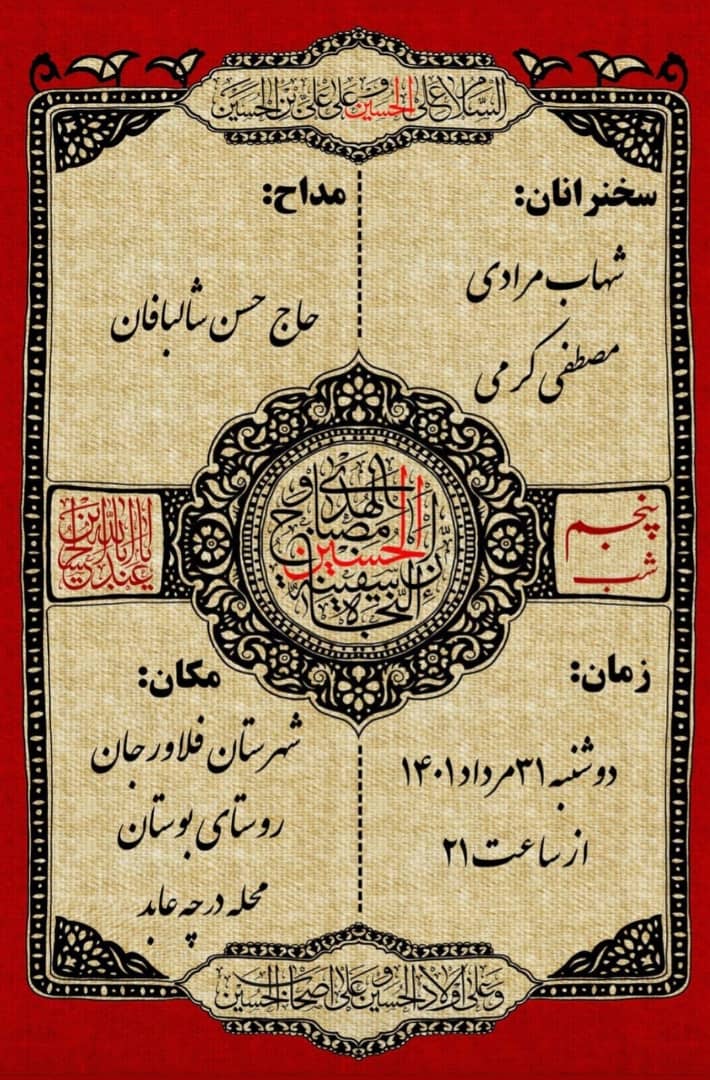 السلام علی الحسین و علی علی بن الحسین
سخنرانان:
شهاب مرادی
مصطفی کرمی
مداح:
حاج حسن شالبافان
پنجم
شب
ان الحسین مصباح الهدی و سفینة النجاة
یا ابا عبدالله یا حسین
زمان:
دوشنبه ۳۱ مرداد ۱۴۰۱
از ساعت ۲۱
مکان:
شهرستان فلاورجان
روستای بوستان
محله درچه عابد
و علی اولاد الحسین و علی اصحاب الحسین